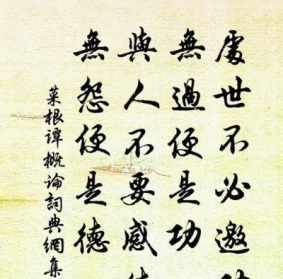 處世不必邀
無過便是功
與人不要感
無怨便是德
菜根譚概論詞典網集